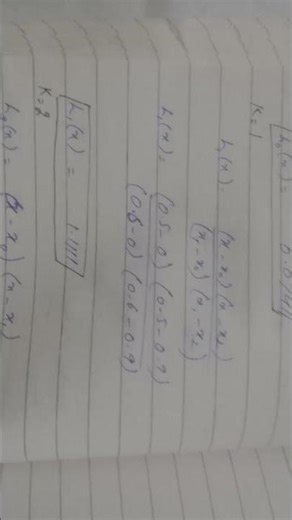 L₀(x) = 0.0741
K=1
L₁(x) = (x-x₀)(x-x₂)
(x₁-x₀)(x₁-x₂)
L₁(x) = (0.5-0)(0.5-0.9)
(0.6-0)(0.6-0.9)
L₁(x) = 1.1111
K=2
L₂(x) = (x-x₀)(x-x₁)